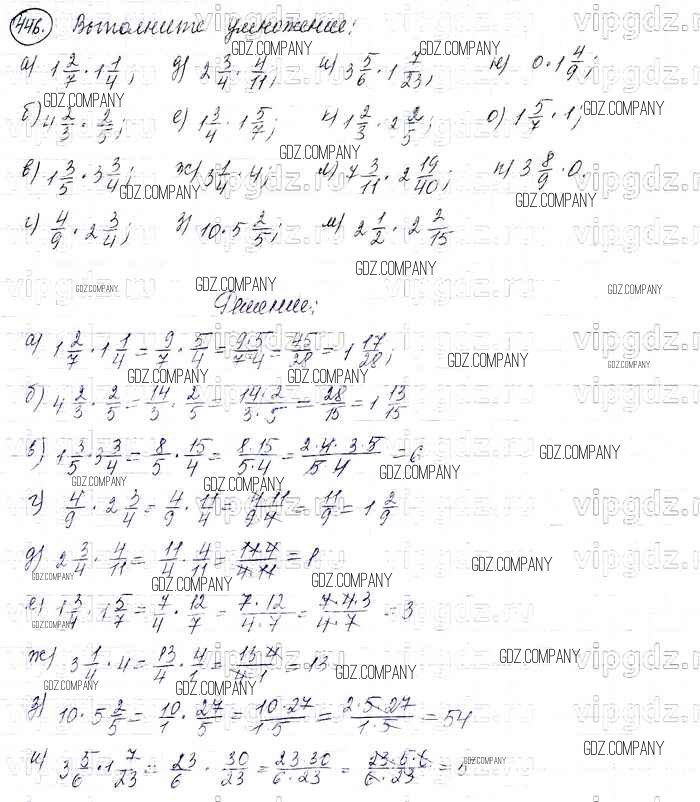 446. Выполните умножение:
а) 1 2/7 · 1 1/4; д) 2 3/4 · 4/11; и) 3 5/6 · 1 7/23; н) 0 · 1 4/9;
б) 4 2/3 · 2/5; е) 1 3/4 · 1 5/7; к) 1 2/3 · 2 2/5; о) 1 5/7 · 1;
в) 1 3/5 · 3 3/4; ж) 3 1/4 · 4; л) 7 3/11 · 2 19/40; п) 3 8/9 · 0.
г) 4/9 · 2 3/4; з) 10 · 5 2/5; м) 2 1/2 · 2 2/15
Решение:
а) 1 2/7 · 1 1/4 = 9/7 · 5/4 = 9·5/7·4 = 45/28 = 1 17/28;
б) 4 2/3 · 2/5 = 14/3 · 2/5 = 14·2/3·5 = 28/15 = 1 13/15
в) 1 3/5 · 3 3/4 = 8/5 · 15/4 = 8·15/5·4 = 2·4·3·5/5·4 = 6
г) 4/9 · 2 3/4 = 4/9 · 11/4 = 4·11/9·4 = 11/9 = 1 2/9
д) 2 3/4 · 4/11 = 11/4 · 4/11 = 11·4/4·11 = 1
е) 1 3/4 · 1 5/7 = 7/4 · 12/7 = 7·12/4·7 = 7·4·3/4·7 = 3
ж) 3 1/4 · 4 = 13/4 · 4/1 = 13·4/4·1 = 13
з) 10 · 5 2/5 = 10/1 · 27/5 = 10·27/1·5 = 2·5·27/1·5 = 54
и) 3 5/6 · 1 7/23 = 23/6 · 30/23 = 23·30/6·23 = 23·5·6/6·23 = 5